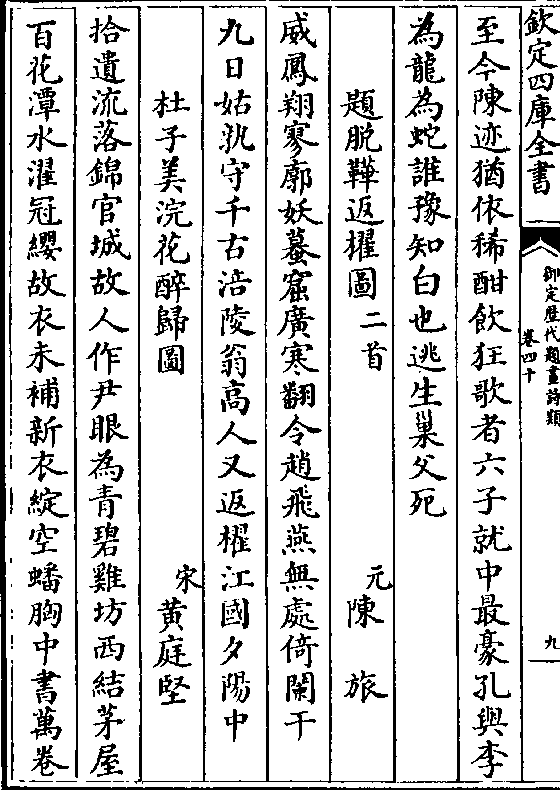 欽定四庫全書
御定歴代題畫詩類
卷四十
九
至今陳迹猶依稀酣飲狂歌者六子就中最豪孔與李
為龍為蛇誰豫知白也逃生巢父死
題脱鞾返櫂圖二首
元陳旅
威鳳翔寥廓妖蟇窟廣寒翻令趙飛燕無處倚闌干
九日姑孰守千古涪陵翁高人又返櫂江國夕陽中
杜子美浣花醉歸圖
宋黄庭堅
拾遺流落錦官城故人作尹眼為青碧雞坊西結茅屋
百花潭水濯冠纓故衣未補新衣綻空蟠胸中書萬卷